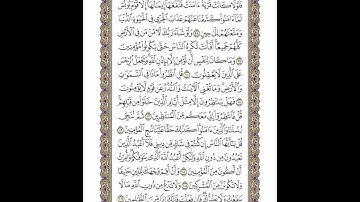 فَلَوْلَا كَانَتْ قَرْيَةٌ ءَامَنَتْ فَنَفَعَهَآ إِيمَٰنُهَآ إِلَّا قَوْمَ يُونُسَ
لَمَّآ ءَامَنُوا۟ كَشَفْنَا عَنْهُمْ عَذَابَ ٱلْخِزْىِ فِى ٱلْحَيَوٰةِ ٱلدُّنْيَا
وَمَتَّعْنَٰهُمْ إِلَىٰ حِينٍ ٩٨ وَلَوْ شَآءَ رَبُّكَ لَءَامَنَ مَن فِى ٱلْأَرْضِ
كُلُّهُمْ جَمِيعًا أَفَأَنتَ تُكْرِهُ ٱلنَّاسَ حَتَّىٰ يَكُونُوا۟ مُؤْمِنِينَ ٩٩
وَمَا كَانَ لِنَفْسٍ أَن تُؤْمِنَ إِلَّا بِإِذْنِ ٱللَّهِ وَيَجْعَلُ ٱلرِّجْسَ
عَلَى ٱلَّذِينَ لَا يَعْقِلُونَ ١٠٠ قُلِ ٱنظُرُوا۟ مَاذَا فِى ٱلسَّمَٰوَٰتِ
وَٱلْأَرْضِ وَمَا تُغْنِى ٱلْءَايَٰتُ وَٱلنُّذُرُ عَن قَوْمٍ لَّا يُؤْمِنُونَ ١٠١
فَهَلْ يَنتَظِرُونَ إِلَّا مِثْلَ أَيَّامِ ٱلَّذِينَ خَلَوْا۟ مِن قَبْلِهِمْ
قُلْ فَٱنتَظِرُوٓا۟ إِنِّى مَعَكُم مِّنَ ٱلْمُنتَظِرِينَ ١٠٢ ثُمَّ نُنَجِّى
رُسُلَنَا وَٱلَّذِينَ ءَامَنُوا۟ كَذَٰلِكَ حَقًّا عَلَيْنَا نُنجِ ٱلْمُؤْمِنِينَ ١٠٣
قُلْ يَٰٓأَيُّهَا ٱلنَّاسُ إِن كُنتُمْ فِى شَكٍّ مِّن دِينِى فَلَآ أَعْبُدُ ٱلَّذِينَ
تَعْبُدُونَ مِن دُونِ ٱللَّهِ وَلَٰكِنْ أَعْبُدُ ٱللَّهَ ٱلَّذِى يَتَوَفَّىٰكُمْ وَأُمِرْتُ
أَنْ أَكُونَ مِنَ ٱلْمُؤْمِنِينَ ١٠٤ وَأَنْ أَقِمْ وَجْهَكَ لِلدِّينِ حَنِيفًا
وَلَا تَكُونَنَّ مِنَ ٱلْمُشْرِكِينَ ١٠٥ وَلَا تَدْعُ مِن دُونِ ٱللَّهِ مَا لَا
يَنفَعُكَ وَلَا يَضُرُّكَ فَإِن فَعَلْتَ فَإِنَّكَ إِذًا مِّنَ ٱلظَّٰلِمِينَ ١٠٦